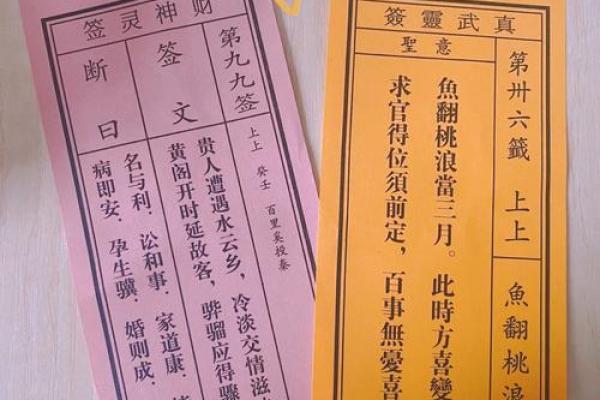 财神灵签
第九九签
上上 癸壬 百里奚投秦
签文
贵人遭遇水云乡，冷淡交情滋
黄阁开时延故客，骅骝应得骤
断曰
名与利、讼和事、家道康、
病即安、孕生骥、婚则成、
真武靈簽
第卅六籤 上上
魚翻桃浪
聖意
魚翻桃浪當三月。此時方喜變
求官得位須前定，百事無憂喜